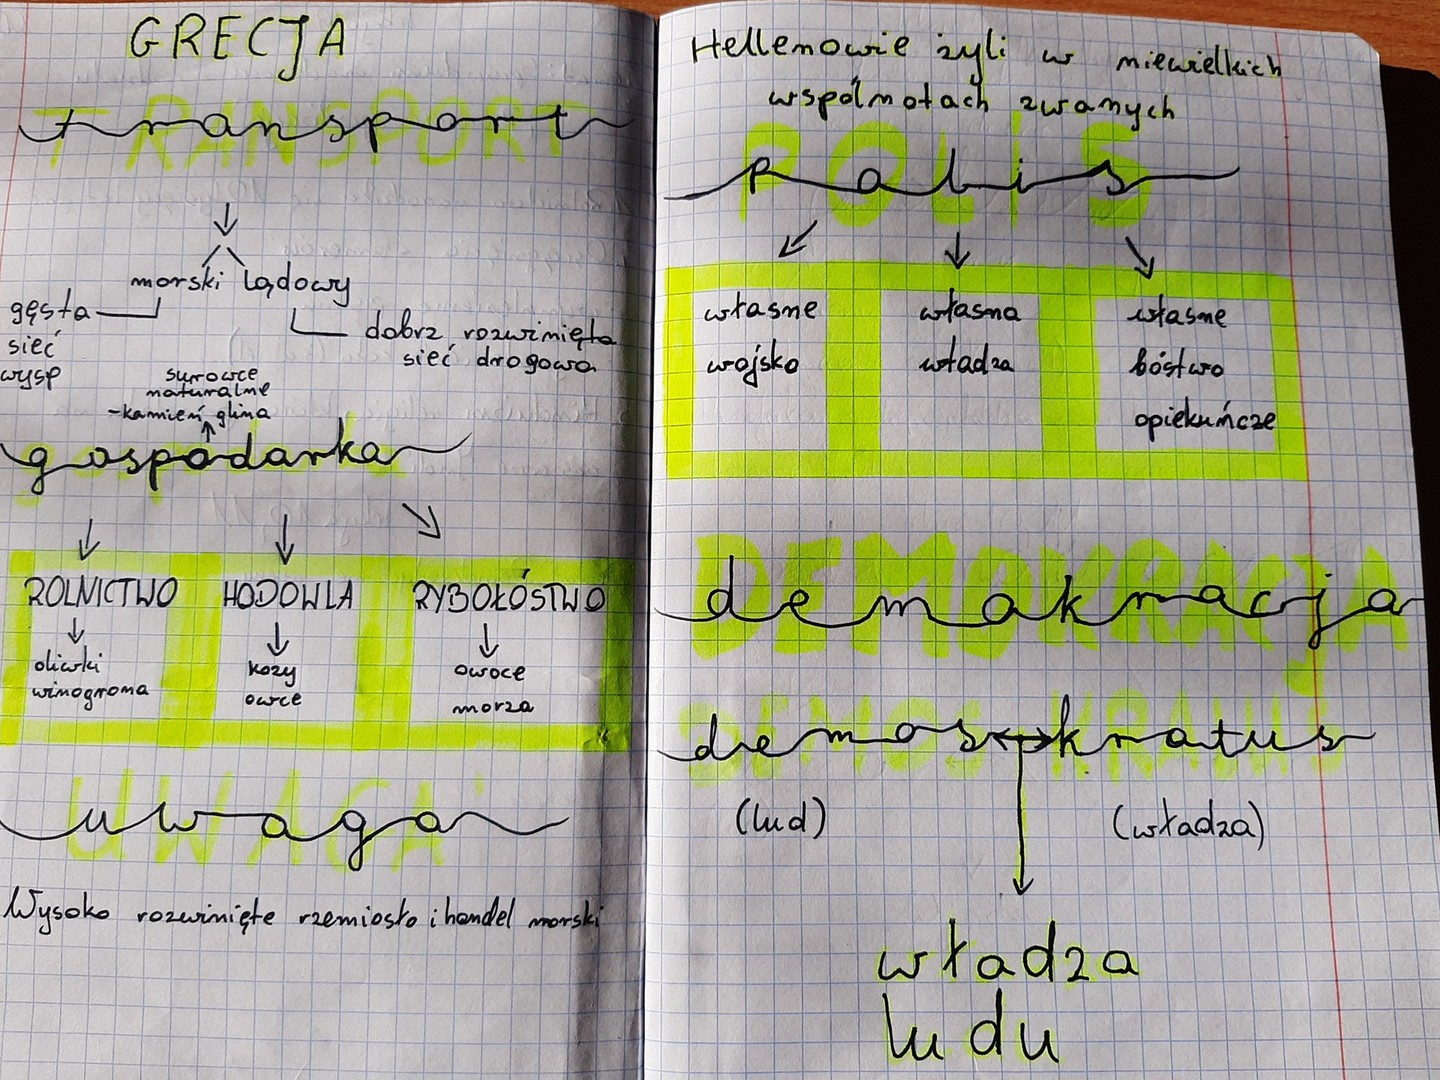 GRECJA
transport
TRANSPORT
morski lądowy
gęsta
sieć
wysp
dobrz rozwinięta
sieć drogowa
surowce
naturalne
-kamień, glina
gospodarka
ROLNICTWO
oliwki
winogrona
HODOWLA
kozy
owce
RYBOŁÓSTWO
owoce
morza
uwaga
UWAGA
Wysoko rozwinięte rzemiosło i handel morski
Hellenowie żyli w niewielkich
wspólnotach zwanych
polis
POLIS
własne
wojsko
własna
władza
własne
bóstwo
opiekuńcze
demokracja
DEMOKRACJA
demos kratus
DEMOS KRATUS
(lud) (władza)
władza
ludu